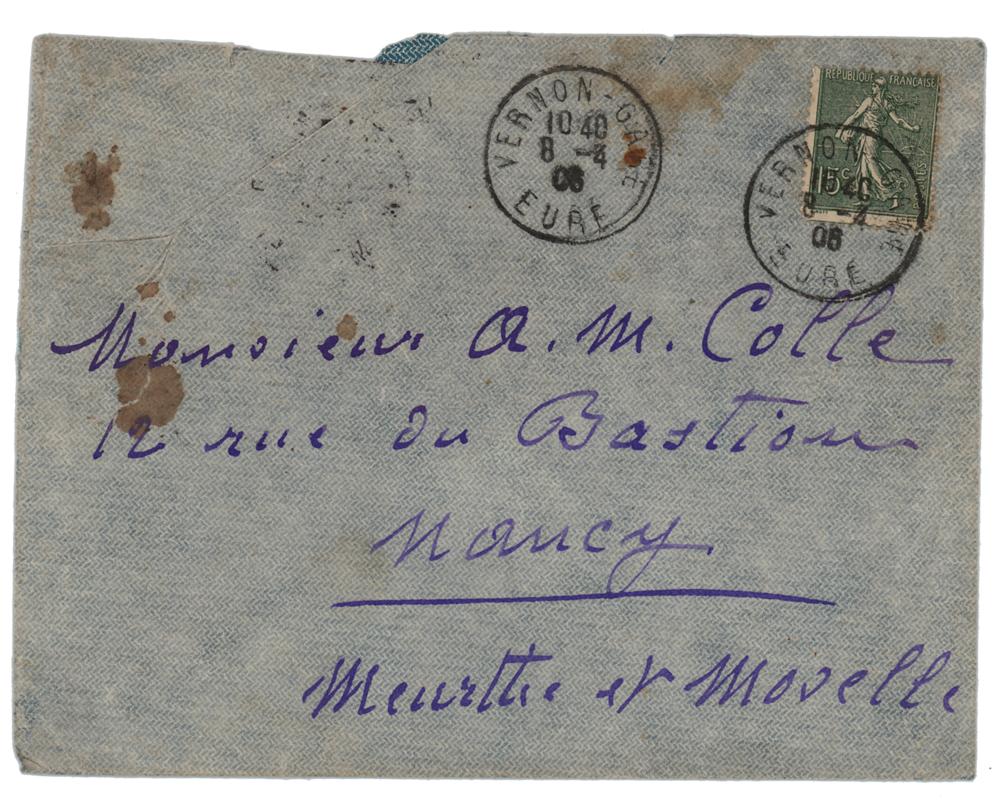 RÉPUBLIQUE FRANÇAISE
15c
VERNON-GARE
10 40
8 -4
06
EURE
VERNON
8 -4
06
EURE
Monsieur A. M. Colle
12 rue du Bastion
Nancy
Meurthe et Moselle